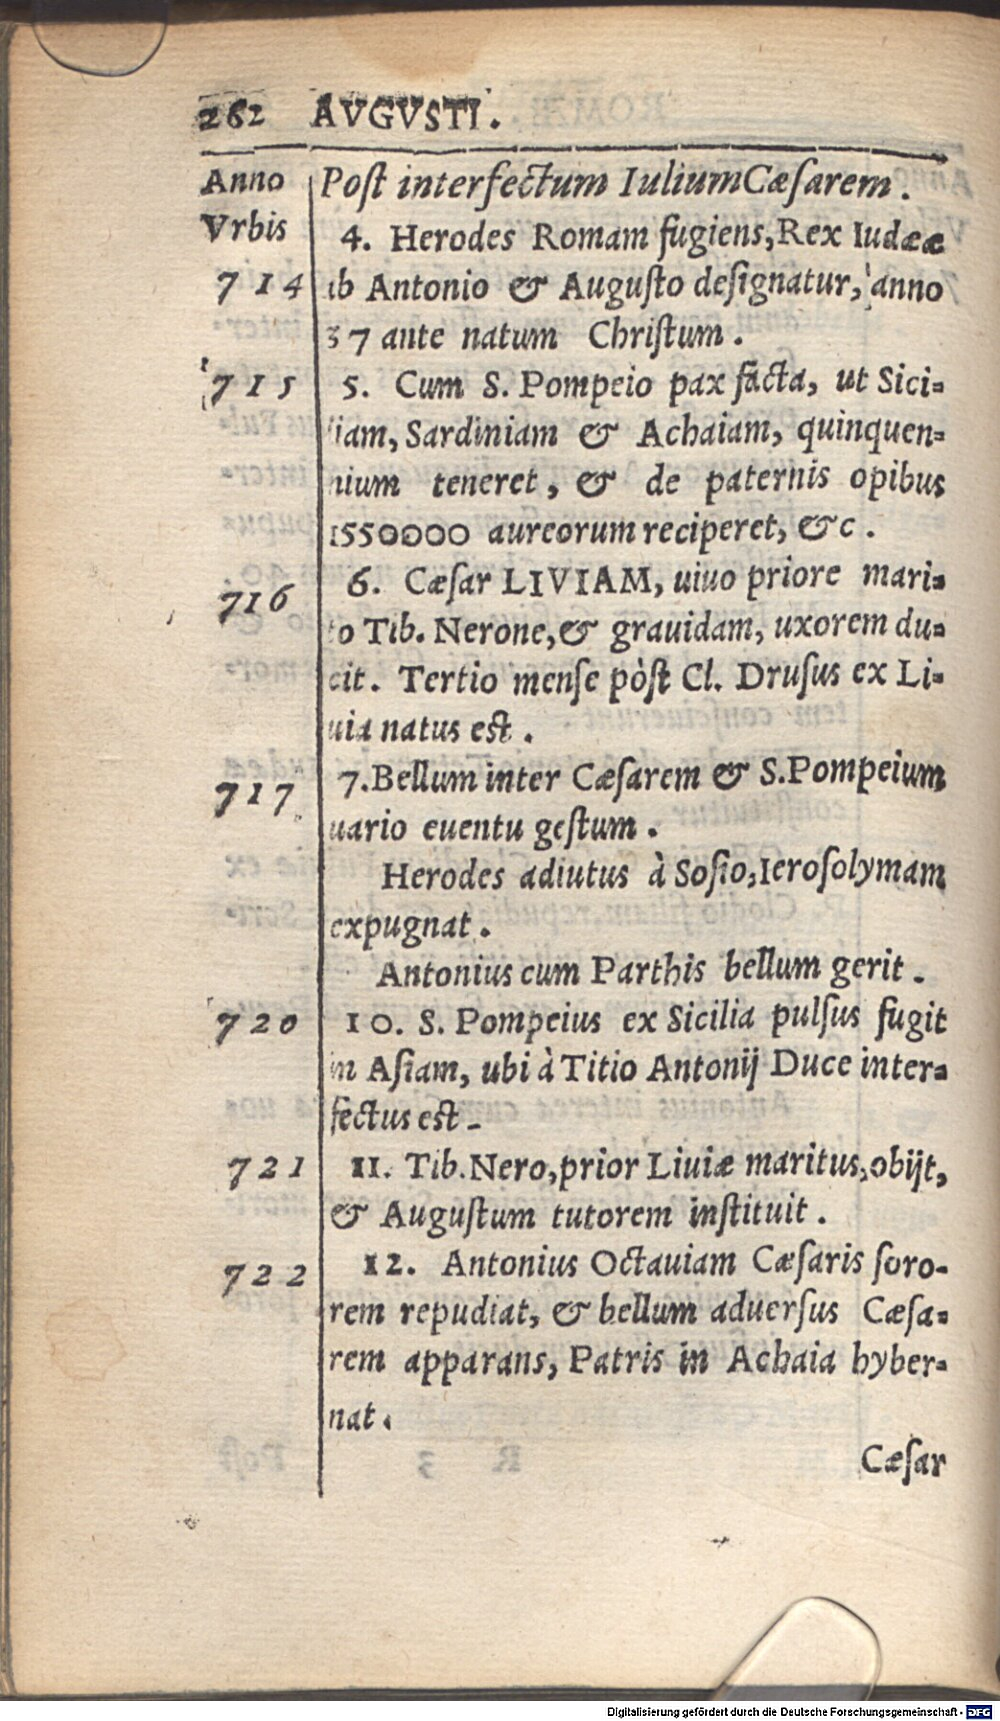 262 AVGVSTI.
Anno Post interfectum Iulium Cæsarem.
Vrbis 4. Herodes Romam fugiens, Rex Iudææ
714 ab Antonio & Augusto designatur, anno
37 ante natum Christum.
715 5. Cum S. Pompeio pax facta, ut Sici-
liam, Sardiniam & Achaiam, quinquen-
nium teneret, & de paternis opibus
1550000 aureorum reciperet, &c.
716 6. Cæsar LIVIAM, uiuo priore mari-
to Tib. Nerone, & grauidam, uxorem du-
cit. Tertio mense pòst Cl. Drusus ex Li-
uia natus est.
717 7. Bellum inter Cæsarem & S. Pompeium
uario euentu gestum.
Herodes adiutus à Sosio, Ierosolymam
expugnat.
Antonius cum Parthis bellum gerit.
720 10. S. Pompeius ex Sicilia pulsus fugit
in Asiam, ubi à Titio Antonij Duce inter-
fectus est.
721 11. Tib. Nero, prior Liuiæ maritus, obijt,
& Augustum tutorem instituit.
722 12. Antonius Octauiam Cæsaris soro-
rem repudiat, & bellum aduersus Cæsa-
rem apparans, Patris in Achaia hyber-
nat.
Cæsar
Digitalisierung gefördert durch die Deutsche Forschungsgemeinschaft - DFG